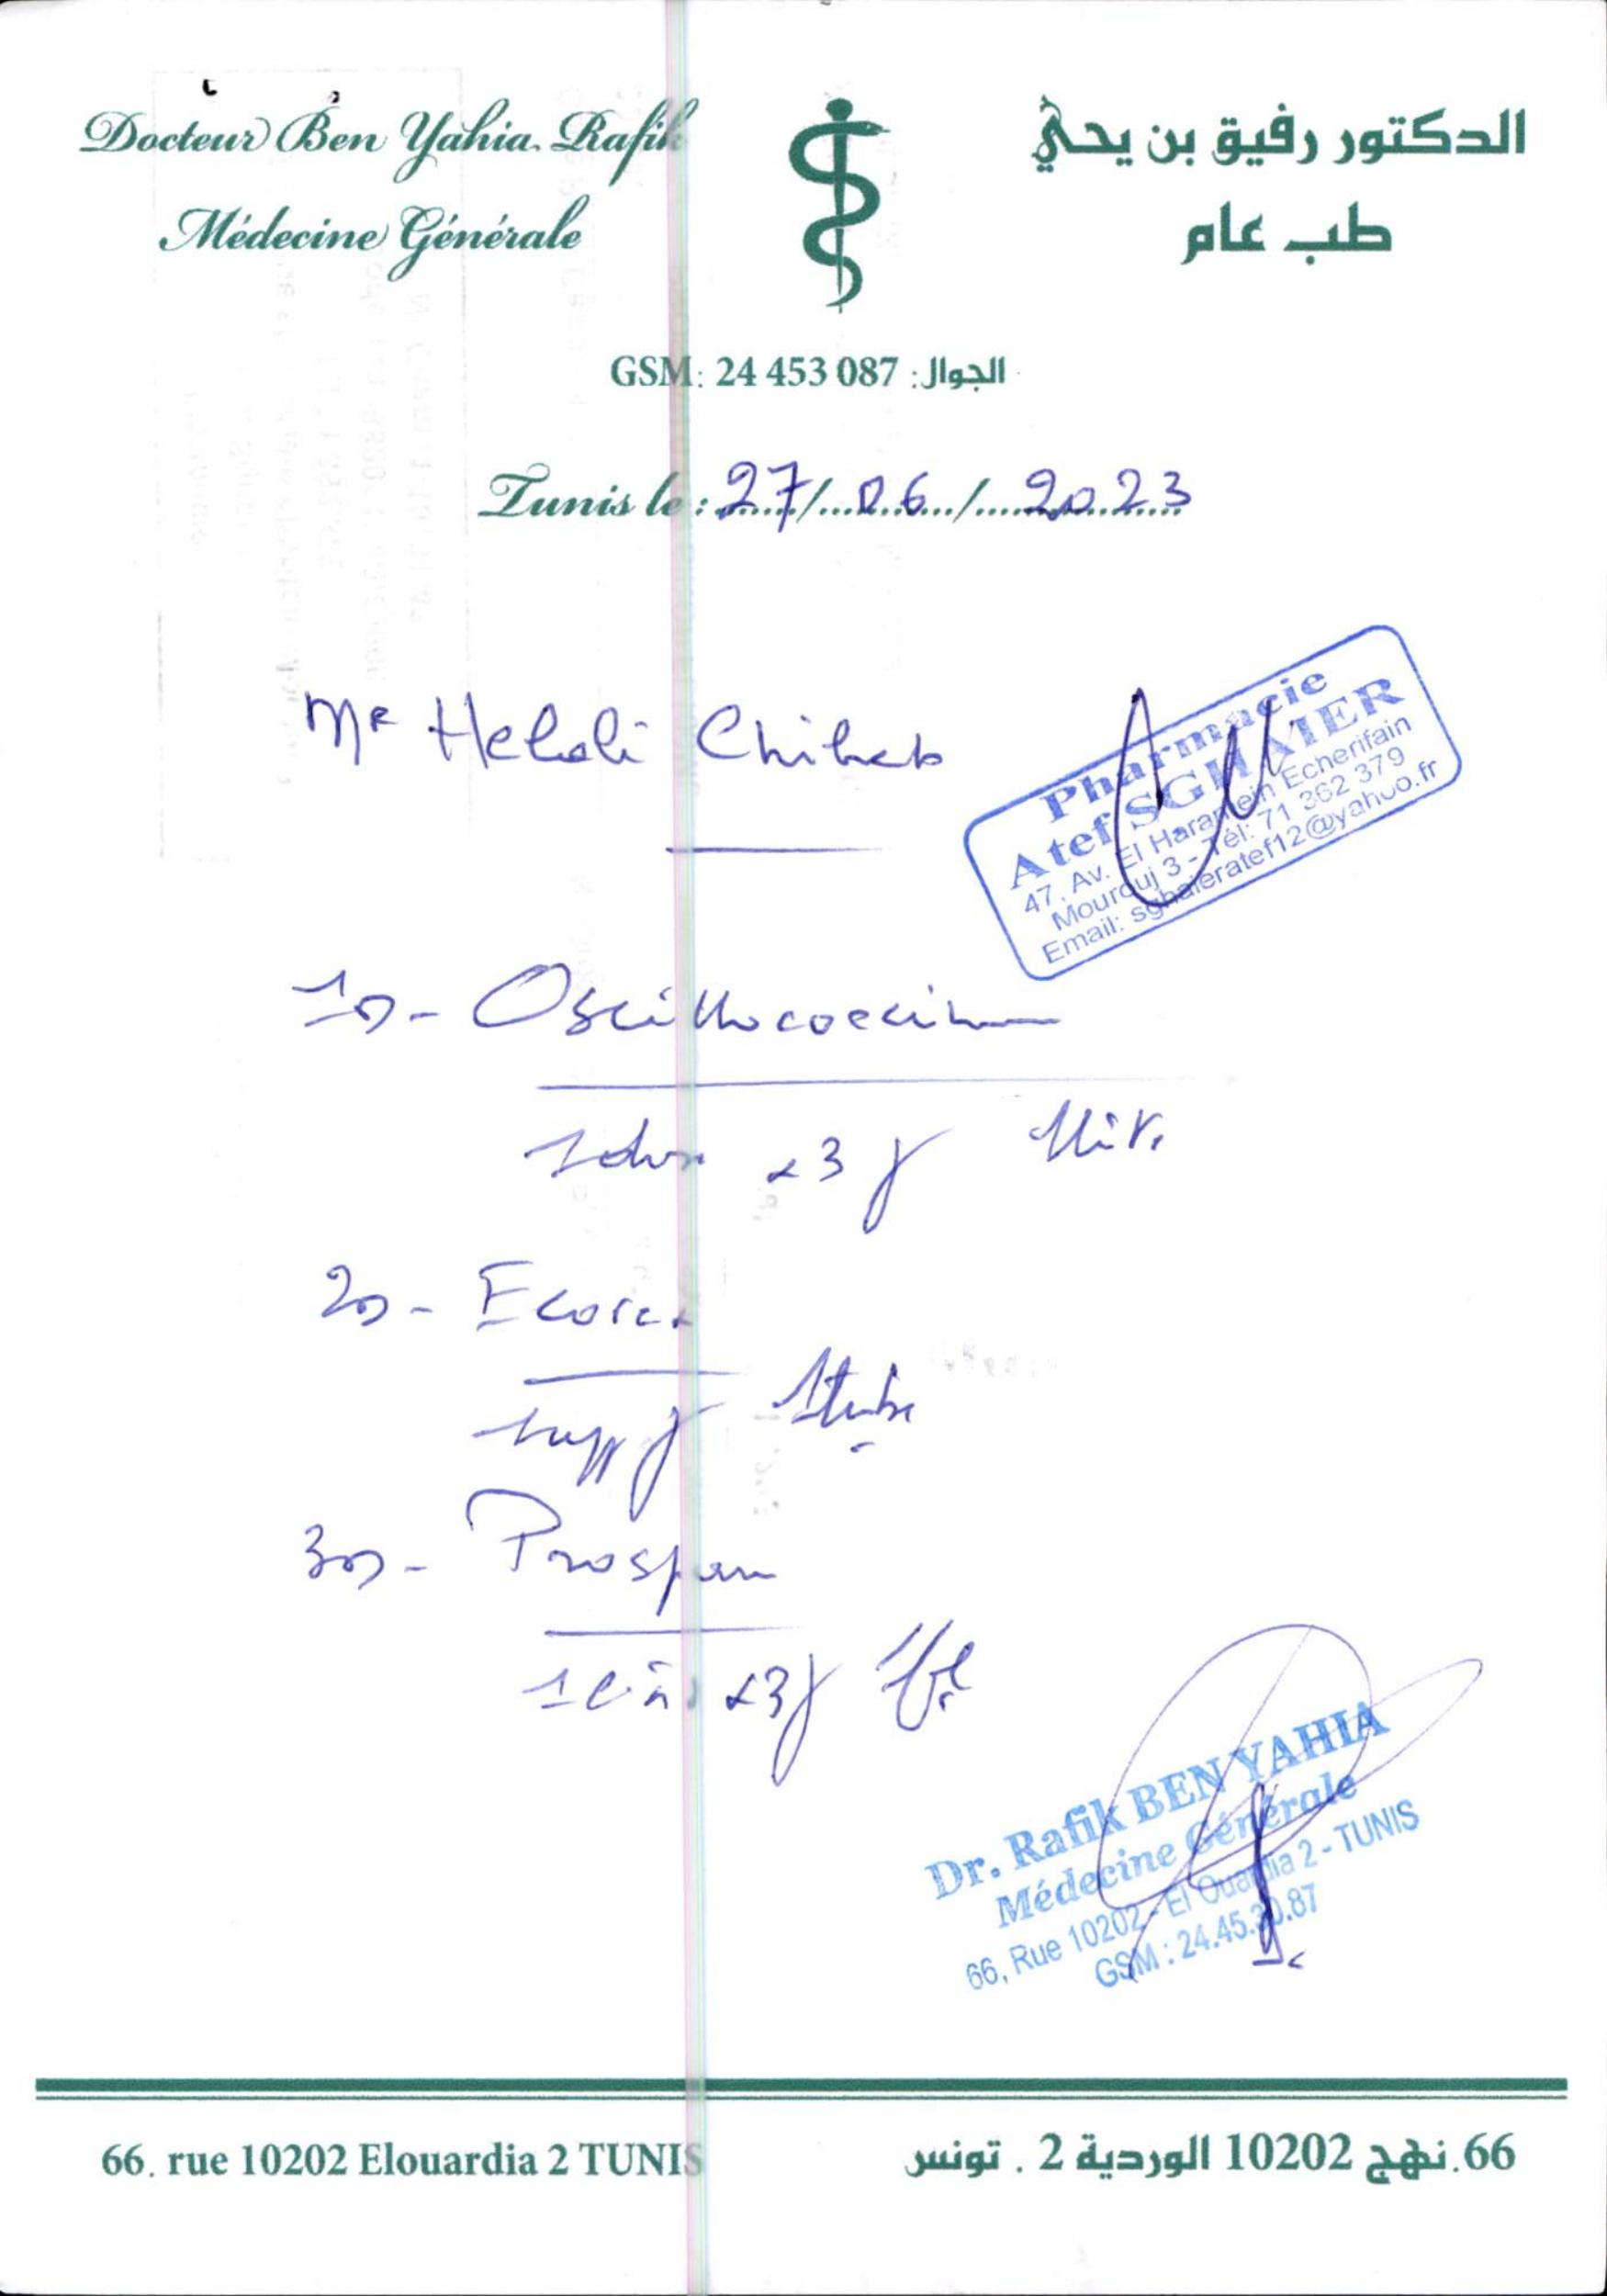 Docteur Ben Yahia Rafik
Médecine Générale
الدكتور رفيق بن يحيي
طب عام
GSM: 24 453 087 :الجوال
Tunis le : 27/06/2023
Mr Helali Chiheb
Pharmacie
Atef SGHAIER
47, Av. El Haramein Echerifain
Mourouj 3 - Tél: 71 362 379
Email: sghaieratef12@yahoo.fr
1°)- Oscillococcinum
1 dose x3 j
2°)- Ecorex
j 1 tube
3°)- Prospan
x3 j 1 fl
Dr. Rafik BEN YAHIA
Médecine Générale
66, Rue 10202 - El Ouardia 2 - TUNIS
GSM : 24.45.30.87
66. rue 10202 Elouardia 2 TUNIS
66. نهج 10202 الوردية 2 . تونس